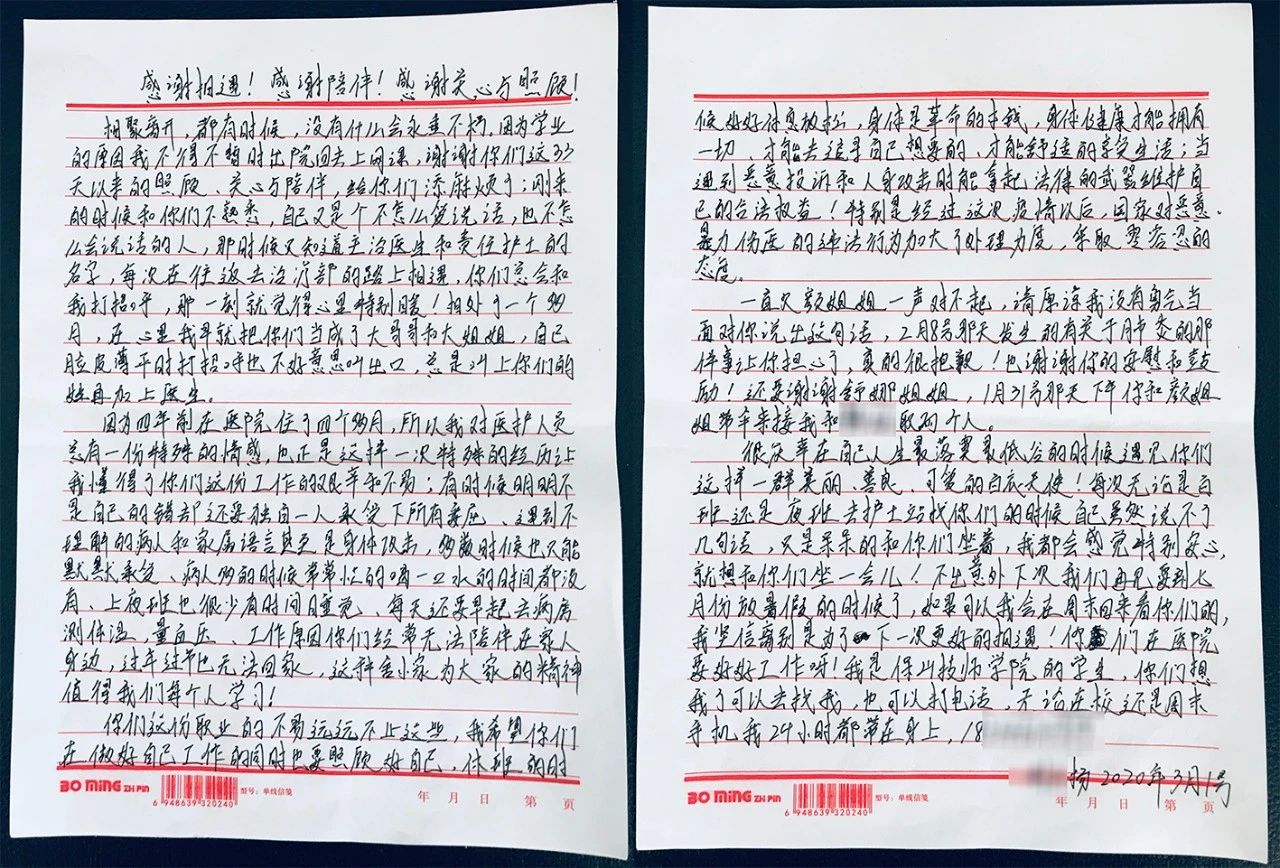 感谢相遇！感谢陪伴！感谢关心与照顾！
相聚离开，都有时候，没有什么会永垂不朽，因为学业
的原因我不得不暂时出院回去上网课，谢谢你们这33
天以来的照顾、关心与陪伴，给你们添麻烦了；刚来
的时候和你们不熟悉，自己又是个不怎么爱说话，也不怎
么会说话的人，那时候只知道主治医生和责任护士的
名字，每次在往返去治疗部的路上相遇，你们总会和
我打招呼，那一刻就觉得心里特别暖！相处了一个多
月，在心里我早就把你们当成了大哥哥和大姐姐，自己
脸皮薄平时打招呼也不好意思叫出口，总是叫上你们的
姓再加上医生。
因为四年前在医院住了四个多月，所以我对医护人员
总有一份特殊的情感，也正是这样一次特殊的经历让
我懂得了你们这份工作的艰辛和不易；有时候明明不
是自己的错却还要独自一人承受下所有委屈、遇到不
理解的病人和家属语言甚至是身体攻击，多数时候也只能
默默承受、病人多的时候常常忙的喝一口水的时间都没
有、上夜班也很少有时间睡觉、每天还要早起去病房
测体温，量血压、工作原因你们经常无法陪伴在家人
身边，过年过节也无法回家，这种舍小家为大家的精神
值得我们每个人学习！
你们这份职业的不易远远不止这些，我希望你们
在做好自己工作的同时也要照顾好自己，休班的时
BO MING ZHI PIN
6 948639 320240
型号：单线信笺
年 月 日 第 页
候好好休息放松，身体是革命的本钱，身体健康才能拥有
一切、才能去追寻自己想要的、才能舒适的享受生活；当
遇到恶意投诉和人身攻击时能拿起法律的武器维护自
己的合法权益！特别是经过这次疫情以后，国家对恶意、
暴力伤医的违法行为加大了处理力度，采取零容忍的
态度。
一直欠颜姐姐一声对不起，请原谅我没有勇气当
面对你说出这句话，2月8号那天发生的有关于的那
件事让你担心了，真的很抱歉！也谢谢你的安慰和鼓
励！还要谢谢舒娜姐姐，1月31号那天下午你和颜姐
姐带伞来接我和 取药个人。
很庆幸在自己人生最落寞最低谷的时候遇见你们
这样一群美丽、善良、可爱的白衣天使！每次无论是白
班还是夜班去护士站找你们的时候自己虽然说不了
几句话，只是呆呆的和你们坐着，我都会感觉特别安心，
就想和你们坐一会儿！不出意外下次我们再见要到七
月份放暑假的时候了，如果可以我会在周末回来看你们的，
我坚信离别是为了下一次更好的相遇！你们在医院
要好好工作呀！我是保山技师学院的学生，你们想
我了可以去找我，也可以打电话，无论在校还是周末
手机我24小时都带在身上，18
扬 2020年3月1号
BO MING ZHI PIN
6 948639 320240
型号：单线信笺
年 月 日 第 页